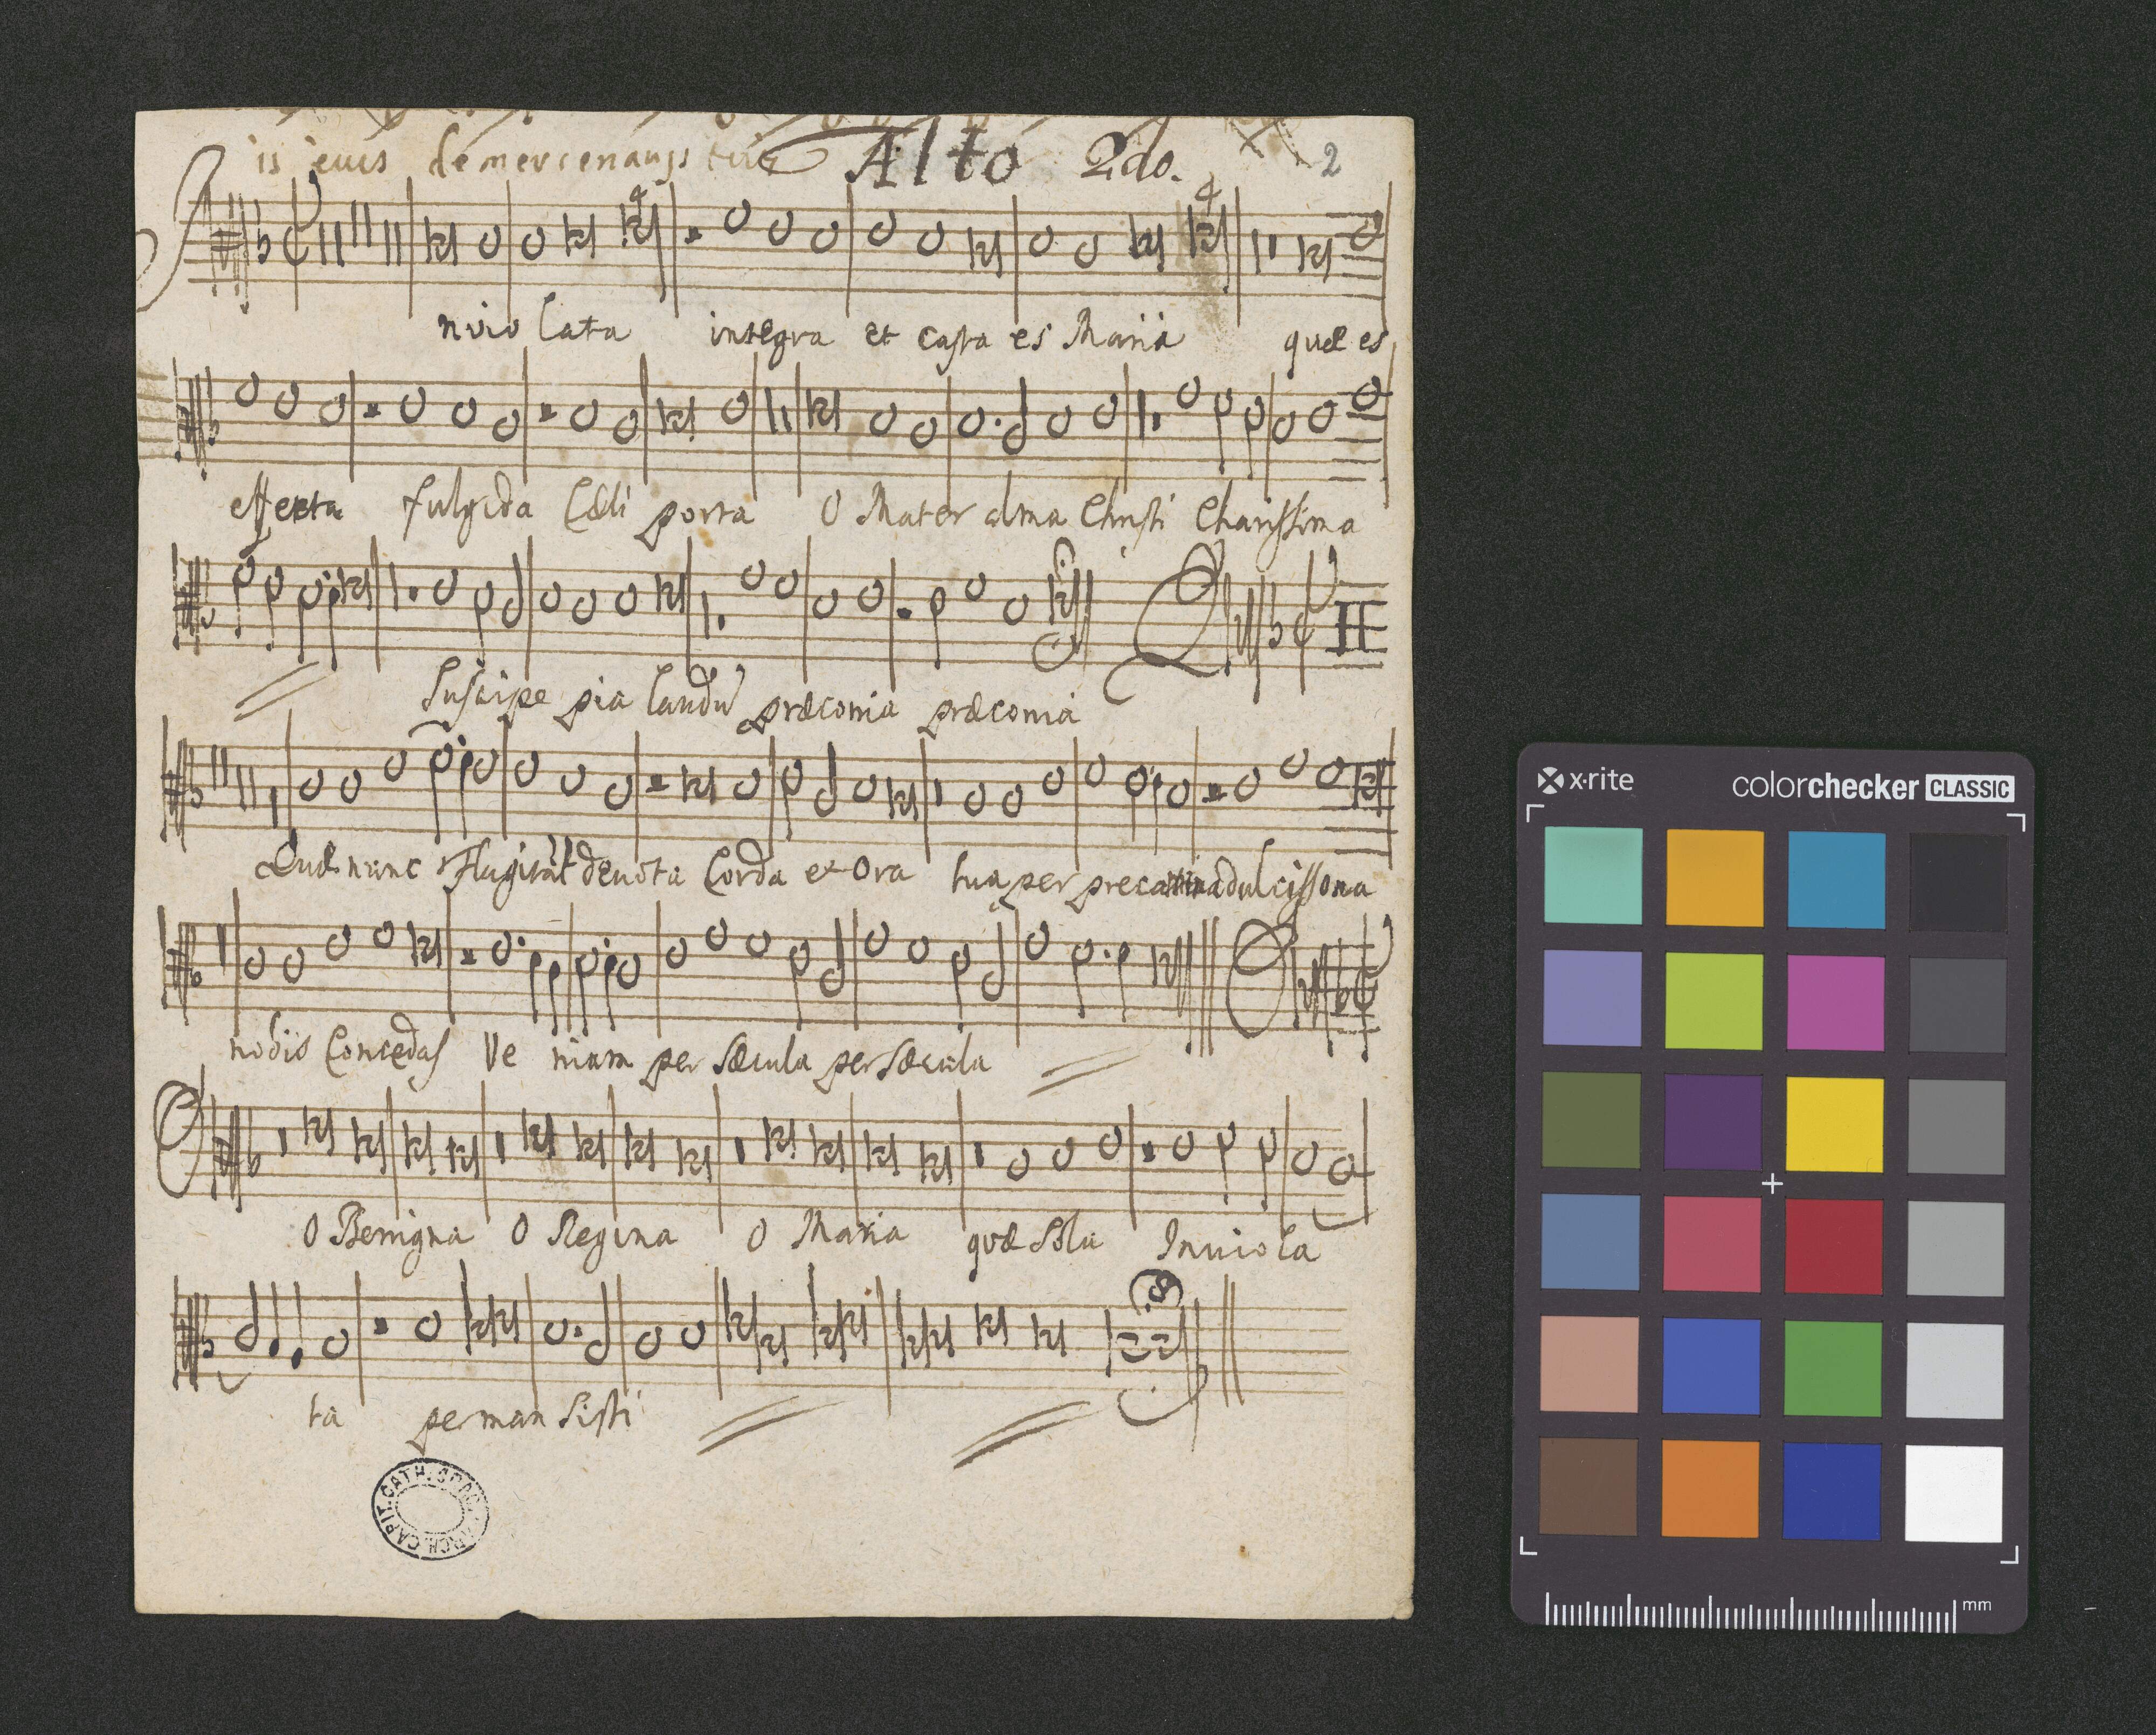 Alto 2do.
2
nvio lata integra et casta es Maria quæ es
effecta fulgida Cæli porta O Mater alma Christi Charissima
Suscipe pia laudū præconia præconia
Quæ nunc Flagitāt deuota Corda et Ora tua per precamina dulcissona
nobis Concedas Ve niam per sæcula per sæcula
O Benigna O Regina O Maria quæ Sola Inuiola
ta permansisti
x·rite colorchecker CLASSIC
mm